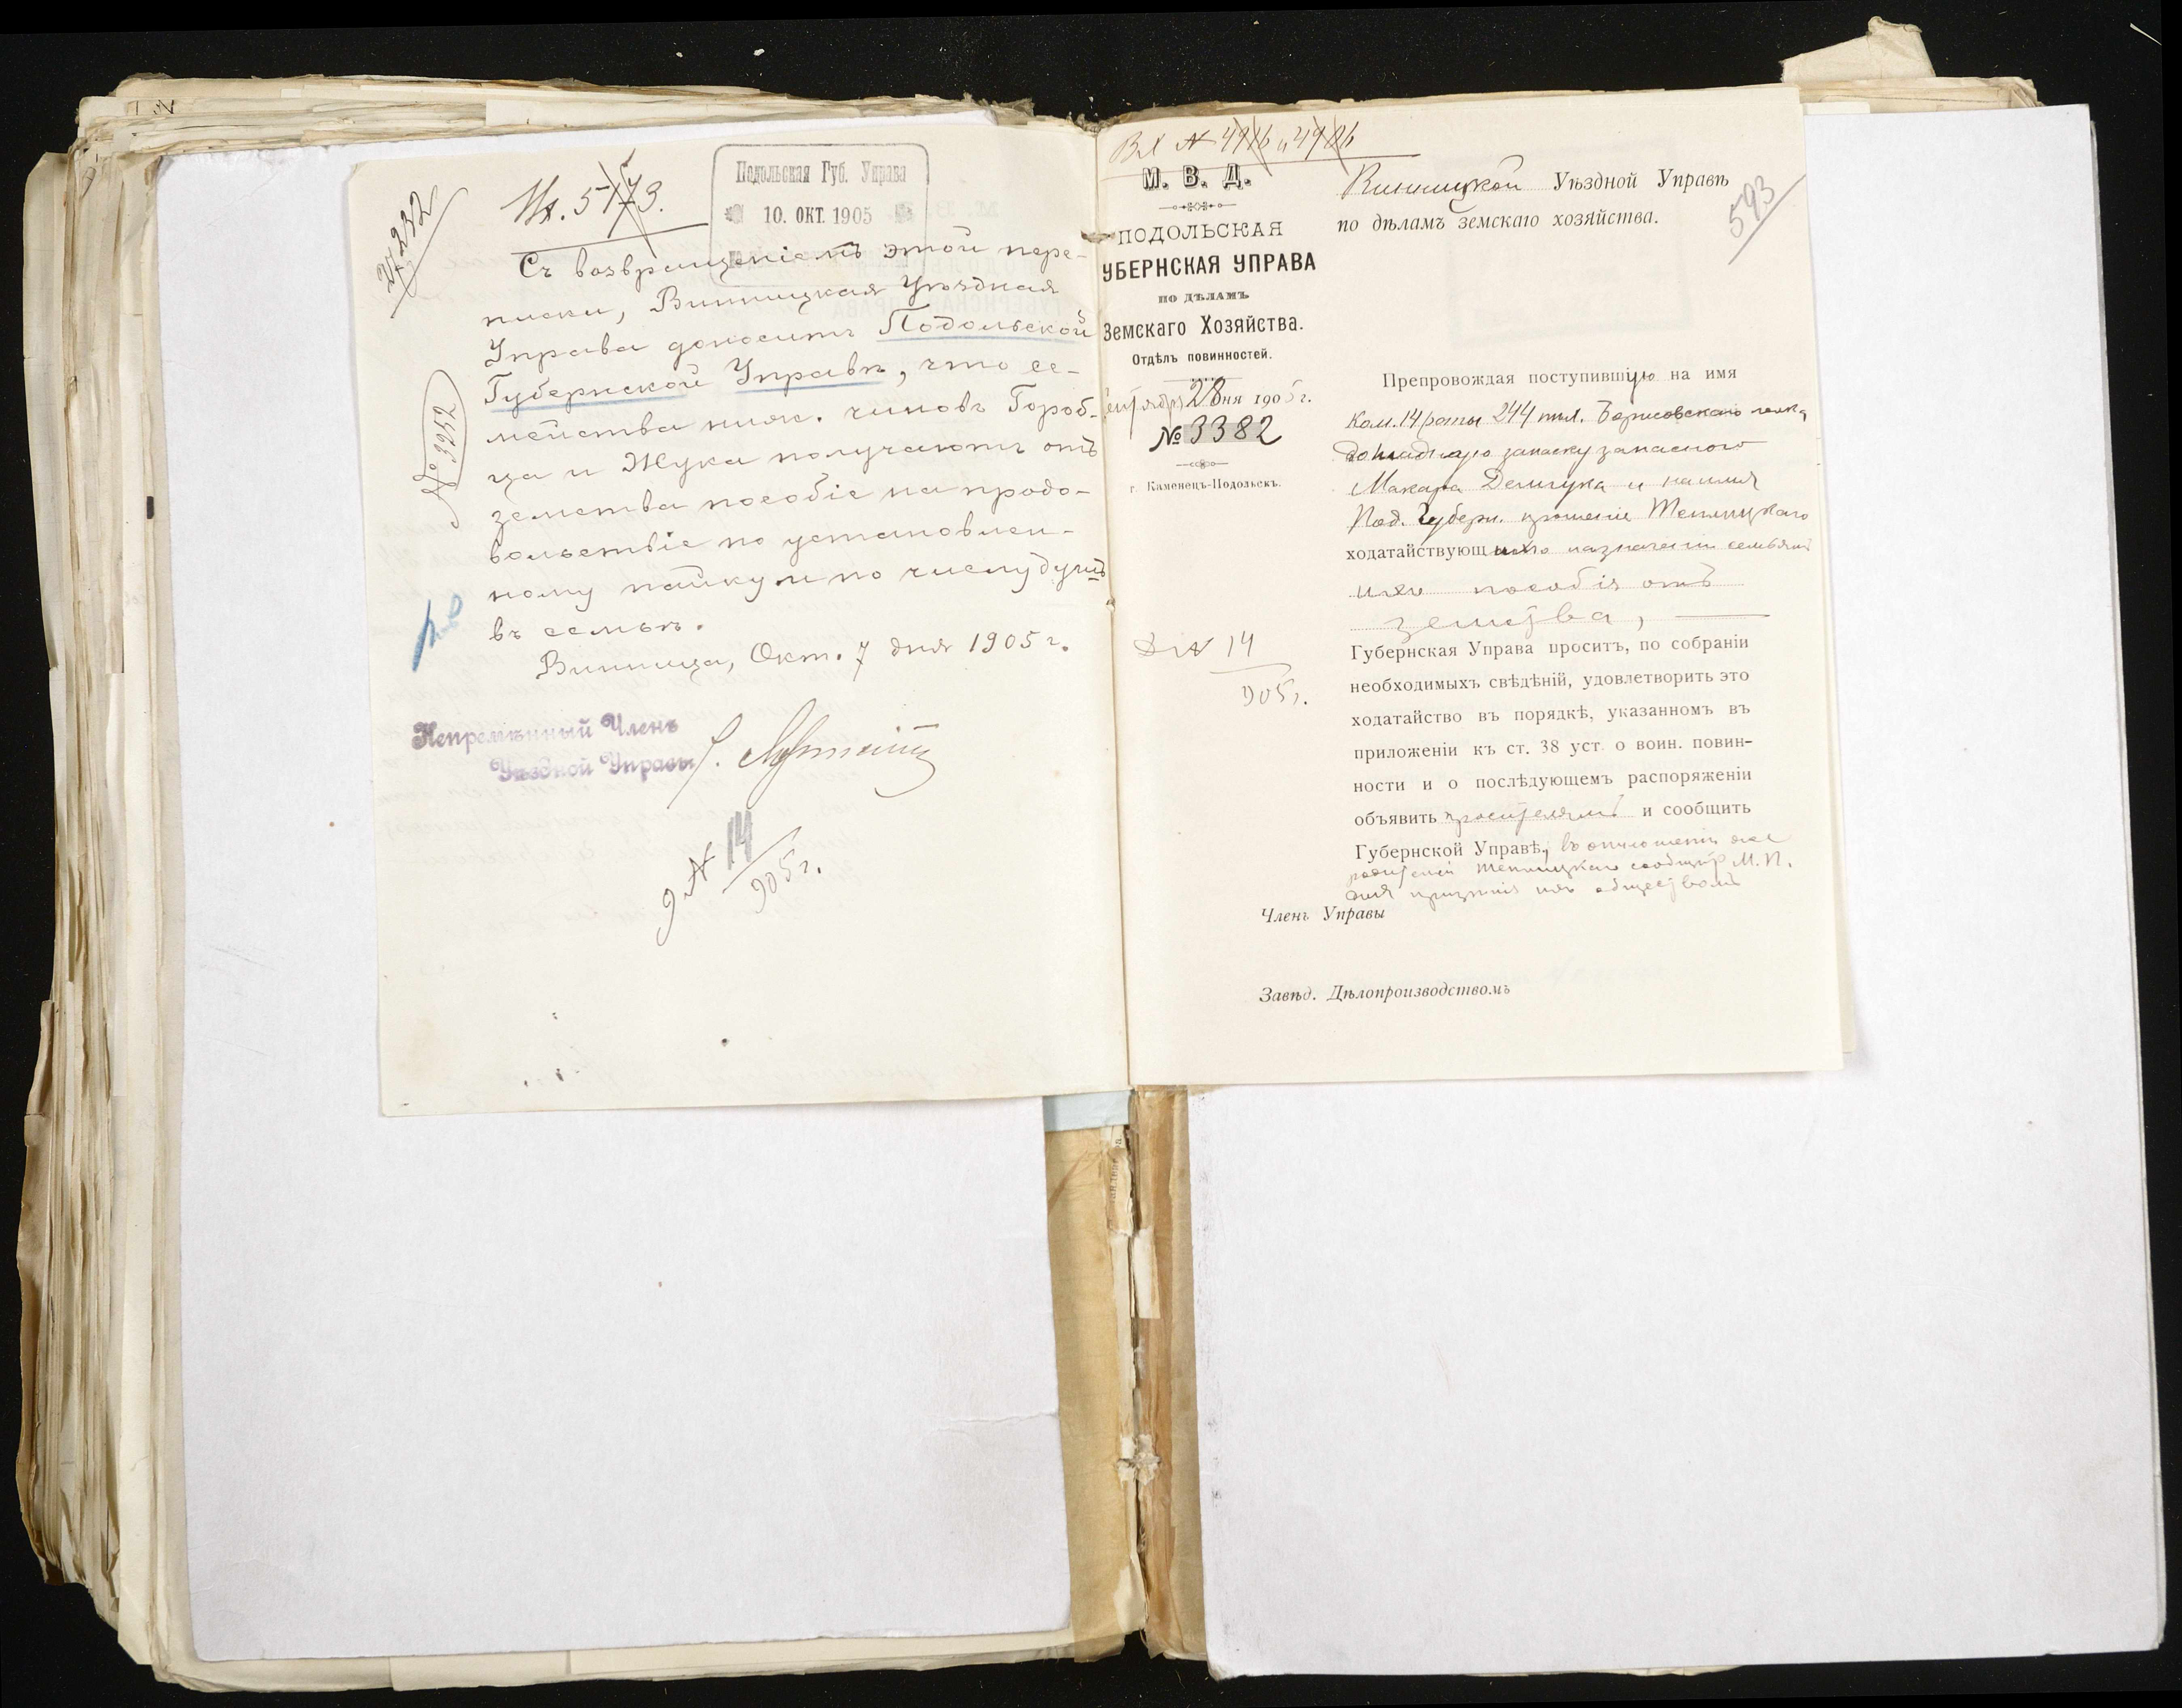 № 3252
Вх. 5173.
Подольская Губ. Управа
10. ОКТ. 1905
Съ возвращеніемъ этой пере-
писки, Винницкая Уѣздная
Управа доноситъ Подольской
Губернской Управѣ, что се-
мейства нижн. чиновъ Город-
ца и Жука получаютъ отъ
земства пособіе на продо-
вольствіе по установлен-
ному пайку и по числу душъ
въ семьѣ.
Винница, Окт. 7 дня 1905 г.
Непремѣнный Членъ
Уѣздной Управы
д № 14
905 г.
Вх №
М. В. Д.
ПОДОЛЬСКАЯ
УБЕРНСКАЯ УПРАВА
ПО ДѢЛАМЪ
Земскаго Хозяйства.
Отдѣлъ повинностей.
28 дня 1905 г.
№ 3382
г. Каменецъ-Подольскъ.
Д № 14
905 г.
593
Винницкой Уѣздной Управѣ
по дѣламъ земскаго хозяйства.
Препровождая поступившую на имя
Ком. 14 роты 244 пѣх. Борисовскаго полка
запаснаго
Макара и на имя
Под. Губерн. прошеніе
ходатайствующихъ о назначеніи семьямъ
ихъ пособія отъ
земства,
Губернская Управа проситъ, по собраніи
необходимыхъ свѣдѣній, удовлетворить это
ходатайство въ порядкѣ, указанномъ въ
приложеніи къ ст. 38 уст. о воин. повин-
ности и о послѣдующемъ распоряженіи
объявить просителямъ и сообщить
Губернской Управѣ, въ отношеніи же
родителей сообщ. М. П.
для призрѣнія ихъ обществомъ
Членъ Управы
Завѣд. Дѣлопроизводствомъ